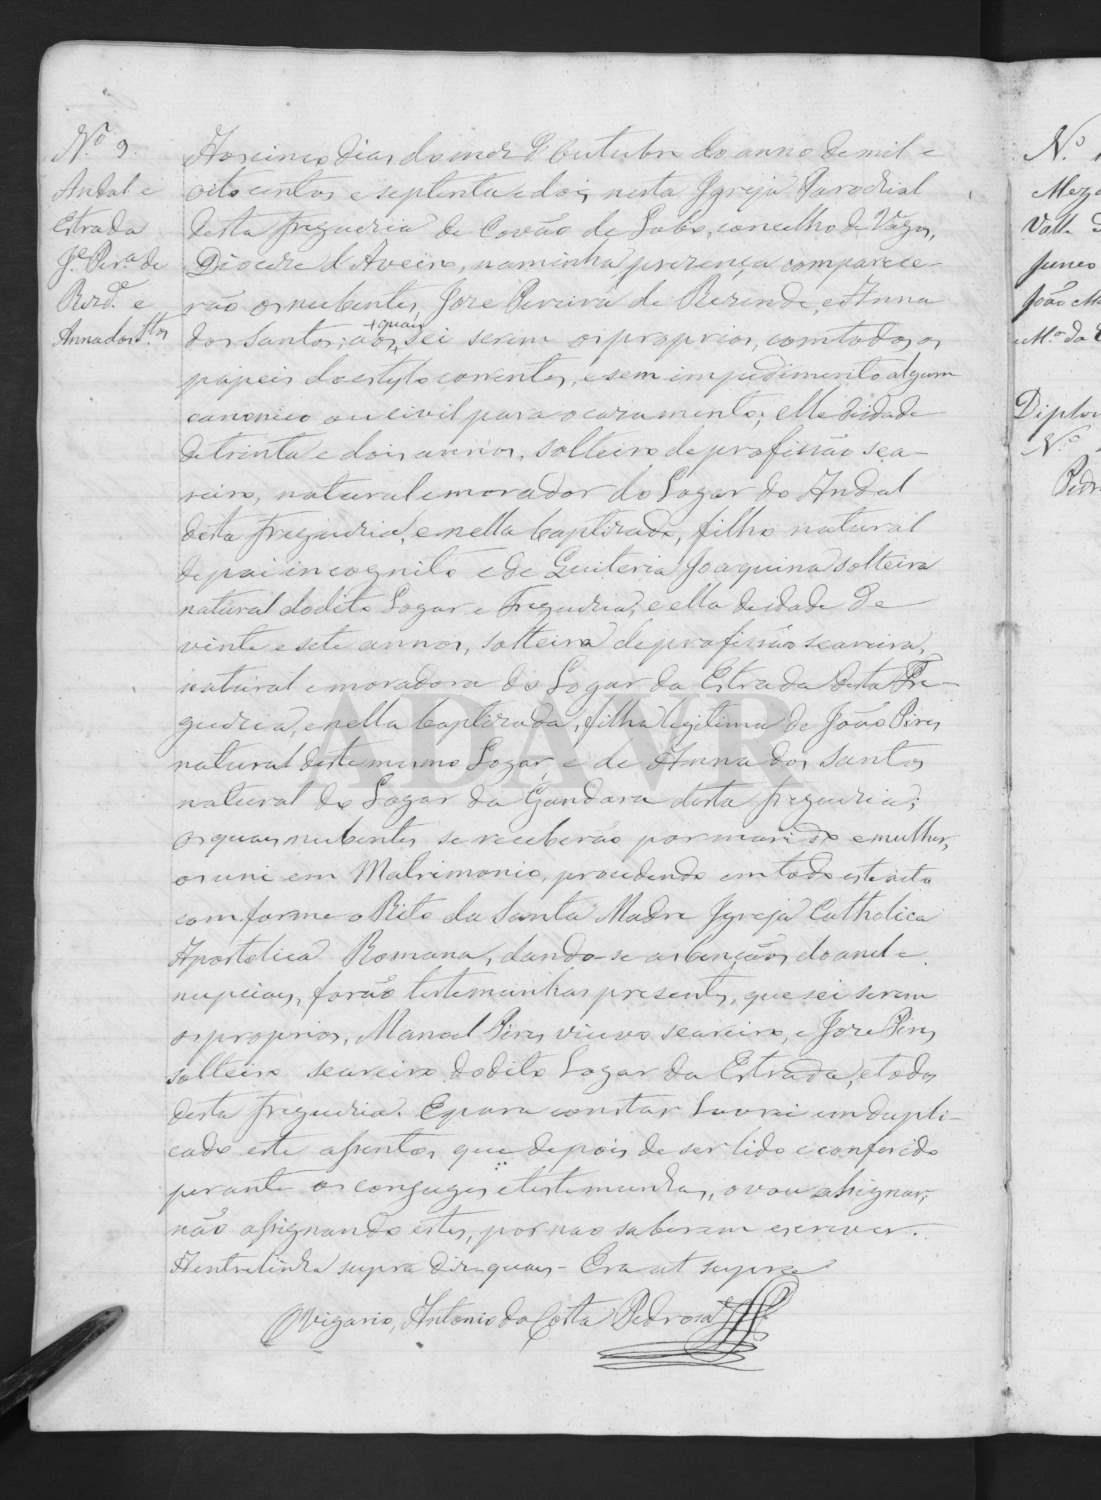 N.º 9.
Andal e
Estrada
J.e Per.ª de
Rezd.e e
Anna dos S.tos
Aos cinco dias do mez d'Outubro do anno de mil e
oito centos e septenta e dois, nesta Igreja Parochial
desta freguezia de Covão de Lobo, concelho de Vagos,
Diocese d'Aveiro, na minha prezença comparece-
rão os nubentes, Joze Pereira de Rezende, e Anna
dos Santos; aos quais sei serem os proprios, com todos os
papeis do estylo correntes, e sem impedimento algum
canonico ou civil para o cazamento; elle de idade
de trinta e dois annos, solteiro de profissão sea-
reiro, natural e morador do Logar do Andal
desta freguezia, e nella baptizado, filho natural
de pai incognito e de Quiteria Joaquina solteira
natural do dito Logar e Freguezia; e ella de idade de
vinte e sete annos, solteira de profissão seareira,
natural e moradora do Logar da Estrada desta Fre-
guezia, e nella baptizada, filha legitima de João Pires
natural deste mesmo Logar, e de Anna dos Santos
natural do Logar da Gandara desta freguezia;
os quaes nubentes se receberão por marido e mulher,
os uni em Matrimonio, procedendo em todo este acto
comforme o Rito da Santa Madre Igreja Catholica
Apostolica Romana, dando-se as bençãos do anel e
nupciaes, forão testemunhas presentes, que sei serem
os proprios, Manoel Pires viuvo seareiro, e Joze Pires
solteiro seareiro do dito Logar da Estrada, e todos
desta freguezia. E para constar lavrei em dupli-
cado este assento, que depois de ser lido e conferido
perante os conjuges e testemunhas, o vou assignar,
não assignando estes, por nao saberem escrever.
A entrelinha supra diz quais - Era ut supra
O Vigario, Antonio da Costa Pedrosa
ADAVR
N.º
Valle
João M
e M.ª da
Diplo
N.º
Pedr